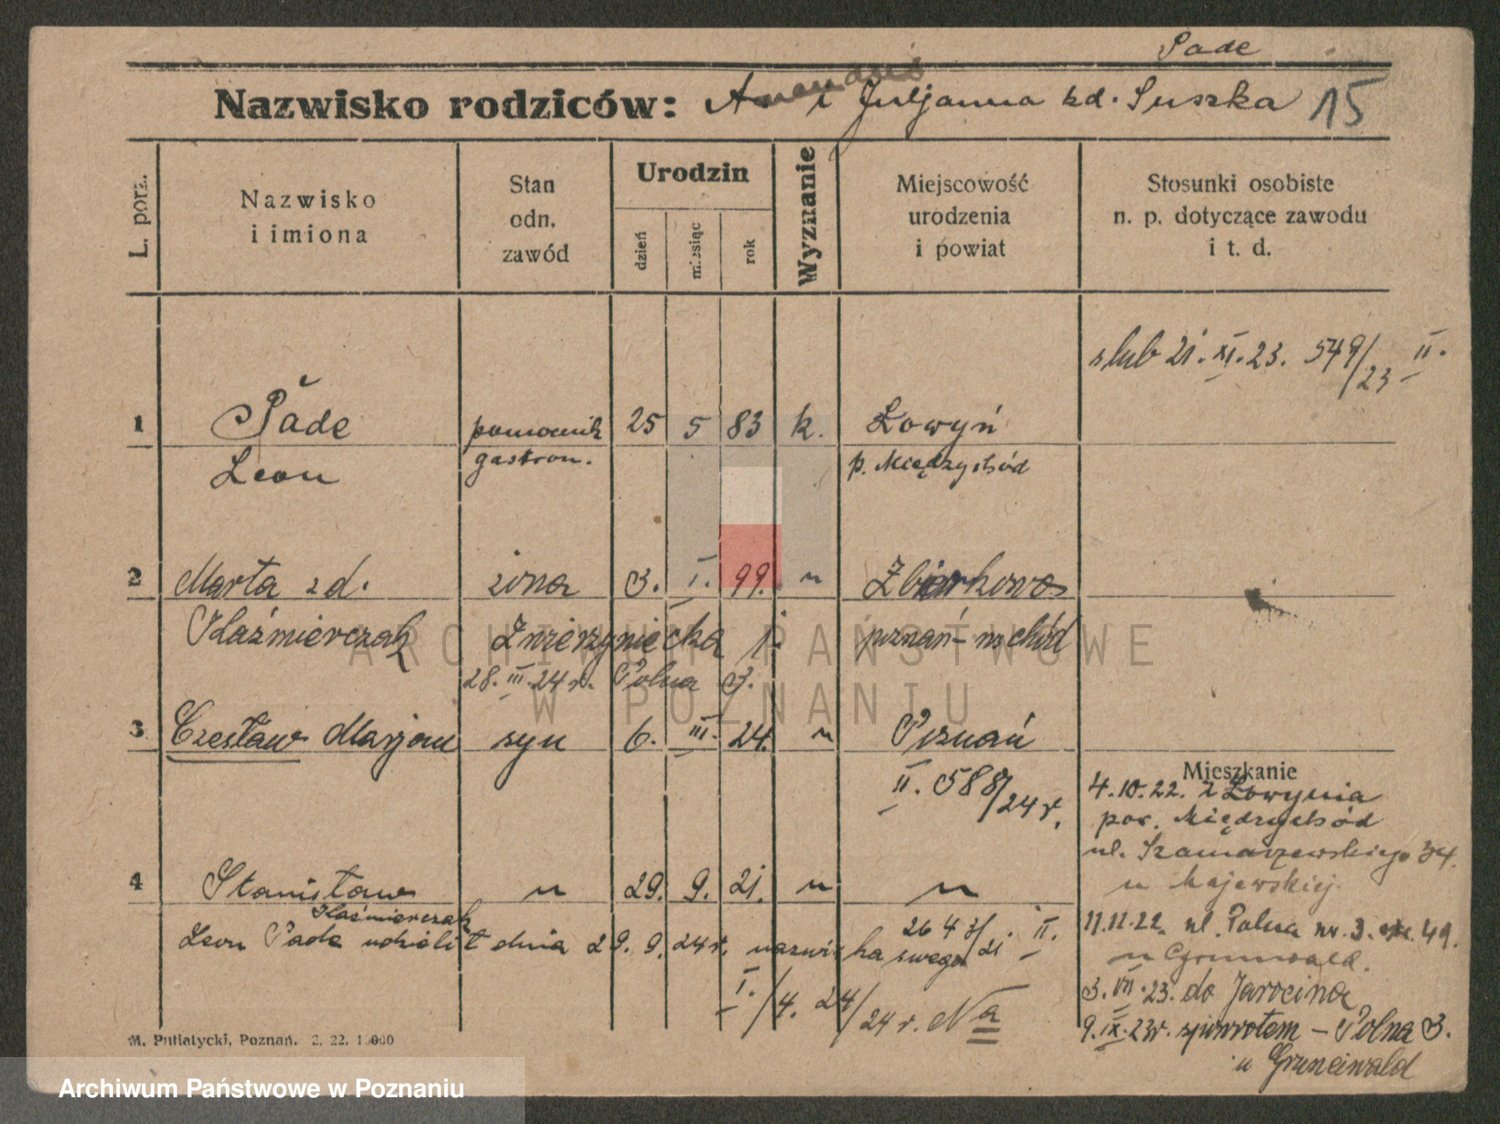 Pade
Nazwisko rodziców: i Juljanna zd. Suszka 15
L. porz.
Nazwisko
i imiona
Stan
odn.
zawód
Urodzin
dzień
miesiąc
rok
Wyznanie
Miejscowość
urodzenia
i powiat
Stosunki osobiste
n. p. dotyczące zawodu
i t. d.
slub 21. XI. 23. 549/23 II.
1 Pade pomocnik 25 5 83 k. Łowyń
Leon gastron. p. Międzychód
2 Marta zd. żona 3. I. 99. " 
Kaźmierczak Zwierzyniecka 1. poznań-wschód
28. III. 24 r. Polna 3.
3 Czesław Marjan syn 6. III. 24. " Poznań
II. 588/24 r.
Mieszkanie
4.10.22. z Łowynia
pow. Międzychód
ul. Szamarzewskiego 34.
u Majewskiej
4 Stanisław " 29. 9. 21. " "
Kaźmierczak
Leon Pade udzielił dnia 29. 9. 24 r. nazwiska swego
II.
I./4. 24/24 r. Na
11.11.22. ul. Polna nr. 3. 49.
u Grunwald.
3. VII. 23. do Jarocina
9. IX. 23r. spowrotem - Polna 3.
u Gruneiwald
M. Putiatycki, Poznań. 2. 22. 1 000
ARCHIWUM PAŃSTWOWE
W POZNANIU
Archiwum Państwowe w Poznaniu